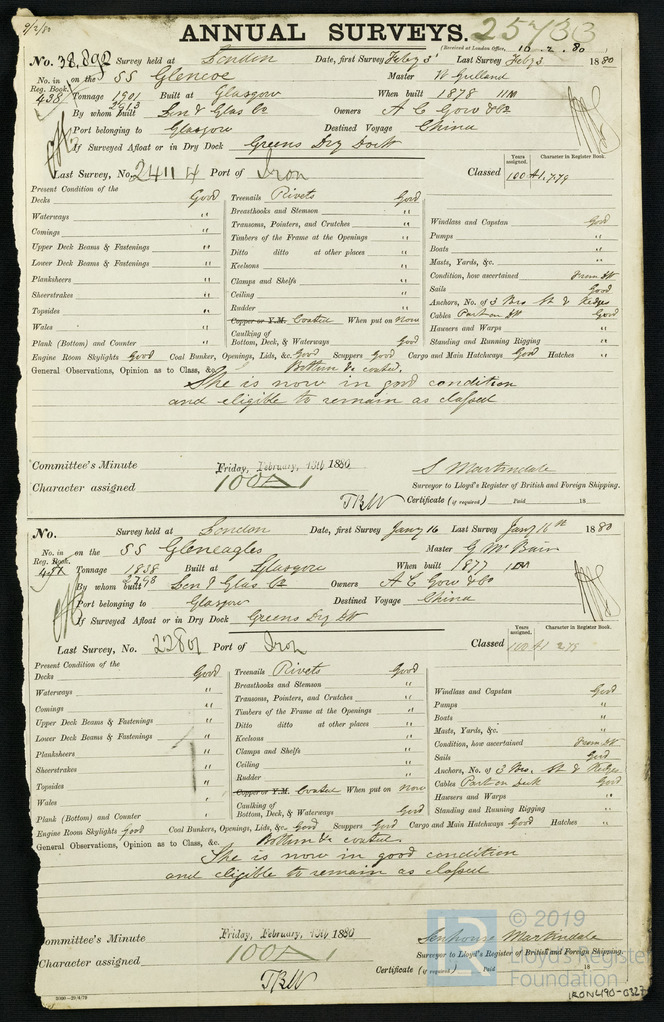 9/2/80
ANNUAL SURVEYS. 25733
(Received at London Office, 10.2.80
No. 38,892 Survey held at London Date, first Survey Feby 3 Last Survey Feby 3 1880
No. in Reg. Book. 438 on the SS Glencoe Master W Gulland
Tonnage 1901 2913 Built at Glasgow When built 1878 11M
By whom built Lon & Glas Co Owners A C Gow & Co
Port belonging to Glasgow Destined Voyage China
If Surveyed Afloat or in Dry Dock Greens Dry Dock
Last Survey, No. 24114 Port of Iron Classed Years assigned. Character in Register Book. 100 A1. 7.79
Present Condition of the
Decks Good Treenails Rivets Good
Waterways " Breasthooks and Stemson " Windlass and Capstan Good
Comings " Transoms, Pointers, and Crutches " Pumps "
Upper Deck Beams & Fastenings " Timbers of the Frame at the Openings " Boats "
Lower Deck Beams & Fastenings " Ditto ditto at other places " Masts, Yards, &c. "
Planksheers " Keelsons " Condition, how ascertained From DK
Sheerstrakes " Clamps and Shelfs " Sails Good
Topsides " Ceiling " Anchors, No. of 3 Brs St & Kedges
Wales " Rudder " Cables Part on DK Good
Copper or Y.M. Coated When put on Now Hausers and Warps "
Plank (Bottom) and Counter " Caulking of Bottom, Deck, & Waterways Good Standing and Running Rigging "
Engine Room Skylights Good Coal Bunker, Openings, Lids, &c. Good Scuppers Good Cargo and Main Hatchways Good Hatches "
General Observations, Opinion as to Class, &c. Bottom &c coated.
She is now in good condition
and eligible to remain as classed
Committee's Minute Friday, February, 13th 1880
Character assigned 100A1
S Martindale
Surveyor to Lloyd's Register of British and Foreign Shipping.
TBW Certificate (if required) Paid 18
No. Survey held at London Date, first Survey Jany 16 Last Survey Jany 16th 1880
No. in Reg. Book. on the SS Gleneagles Master G McBain
Tonnage 1838 2798 Built at Glasgow When built 1877
By whom built Lon & Glas Co Owners A C Gow & Co
Port belonging to Glasgow Destined Voyage China
If Surveyed Afloat or in Dry Dock Greens Dry DK
Last Survey, No. 22801 Port of Iron Classed Years assigned. Character in Register Book. 100 A1 2.79
Present Condition of the
Decks Good Treenails Rivets Good
Waterways " Breasthooks and Stemson " Windlass and Capstan Good
Comings " Transoms, Pointers, and Crutches " Pumps "
Upper Deck Beams & Fastenings " Timbers of the Frame at the Openings " Boats "
Lower Deck Beams & Fastenings " Ditto ditto at other places " Masts, Yards, &c. "
Planksheers " Keelsons " Condition, how ascertained From DK
Sheerstrakes " Clamps and Shelfs " Sails Good
Topsides " Ceiling " Anchors, No. of 3 Brs. St & Kedges
Wales " Rudder " Cables Part on Deck Good
Copper or Y.M. Coated When put on Now Hausers and Warps "
Plank (Bottom) and Counter " Caulking of Bottom, Deck, & Waterways Good Standing and Running Rigging "
Engine Room Skylights Good Coal Bunkers, Openings, Lids, &c. Good Scuppers Good Cargo and Main Hatchways Good Hatches "
General Observations, Opinion as to Class, &c. Bottom &c coated
She is now in good condition
and eligible to remain as classed
ommittee's Minute Friday, February, 13th 1880
Character assigned 100A1
Senhouse Martindale
Surveyor to Lloyd's Register of British and Foreign Shipping.
TBW Certificate (if required) Paid 18
LR © 2019 Lloyd's Register Foundation
IRON490-0327